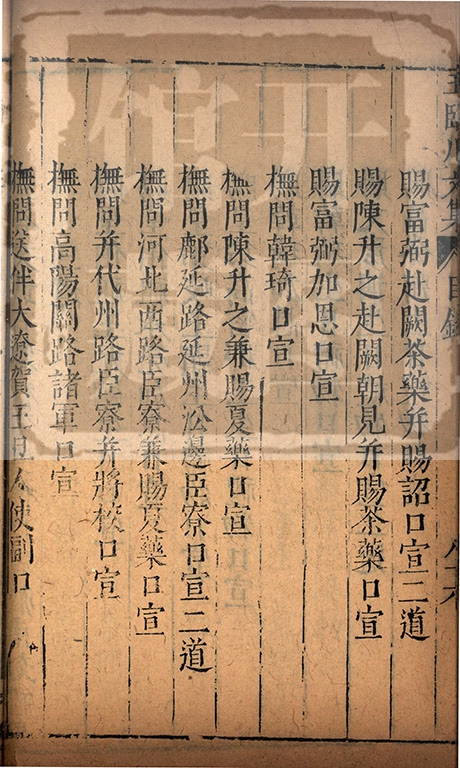 王臨川文集 目錄 八十六
賜富弼赴闕茶藥并賜詔口宣二道
賜陳升之赴闕朝見并賜茶藥口宣
賜富弼加恩口宣
撫問韓琦口宣
撫問陳升之兼賜夏藥口宣
撫問鄜延路延州沿邊臣寮口宣二道
撫問河北西路臣寮兼賜夏藥口宣
撫問并代州路臣寮并將校口宣
撫問高陽關路諸軍口宣
撫問送伴大遼賀正旦人使副口